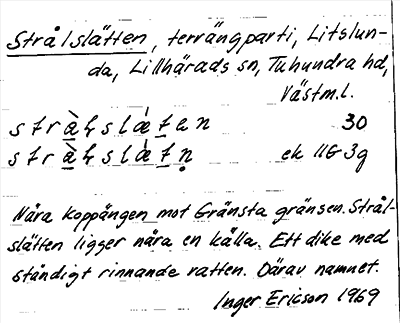 Strålslätten, terrängparti, Litslun-
da, Lillhärads sn, Tuhundra hd,
Västm.l.
stràɫslǽtən 30
stràɫslǽtn̥ ek 11G 3g
Nära Koppängen mot Gränsta gränsen. Strål-
slätten ligger nära en källa. Ett dike med
ständigt rinnande vatten. Därav namnet.
Inger Ericson 1969